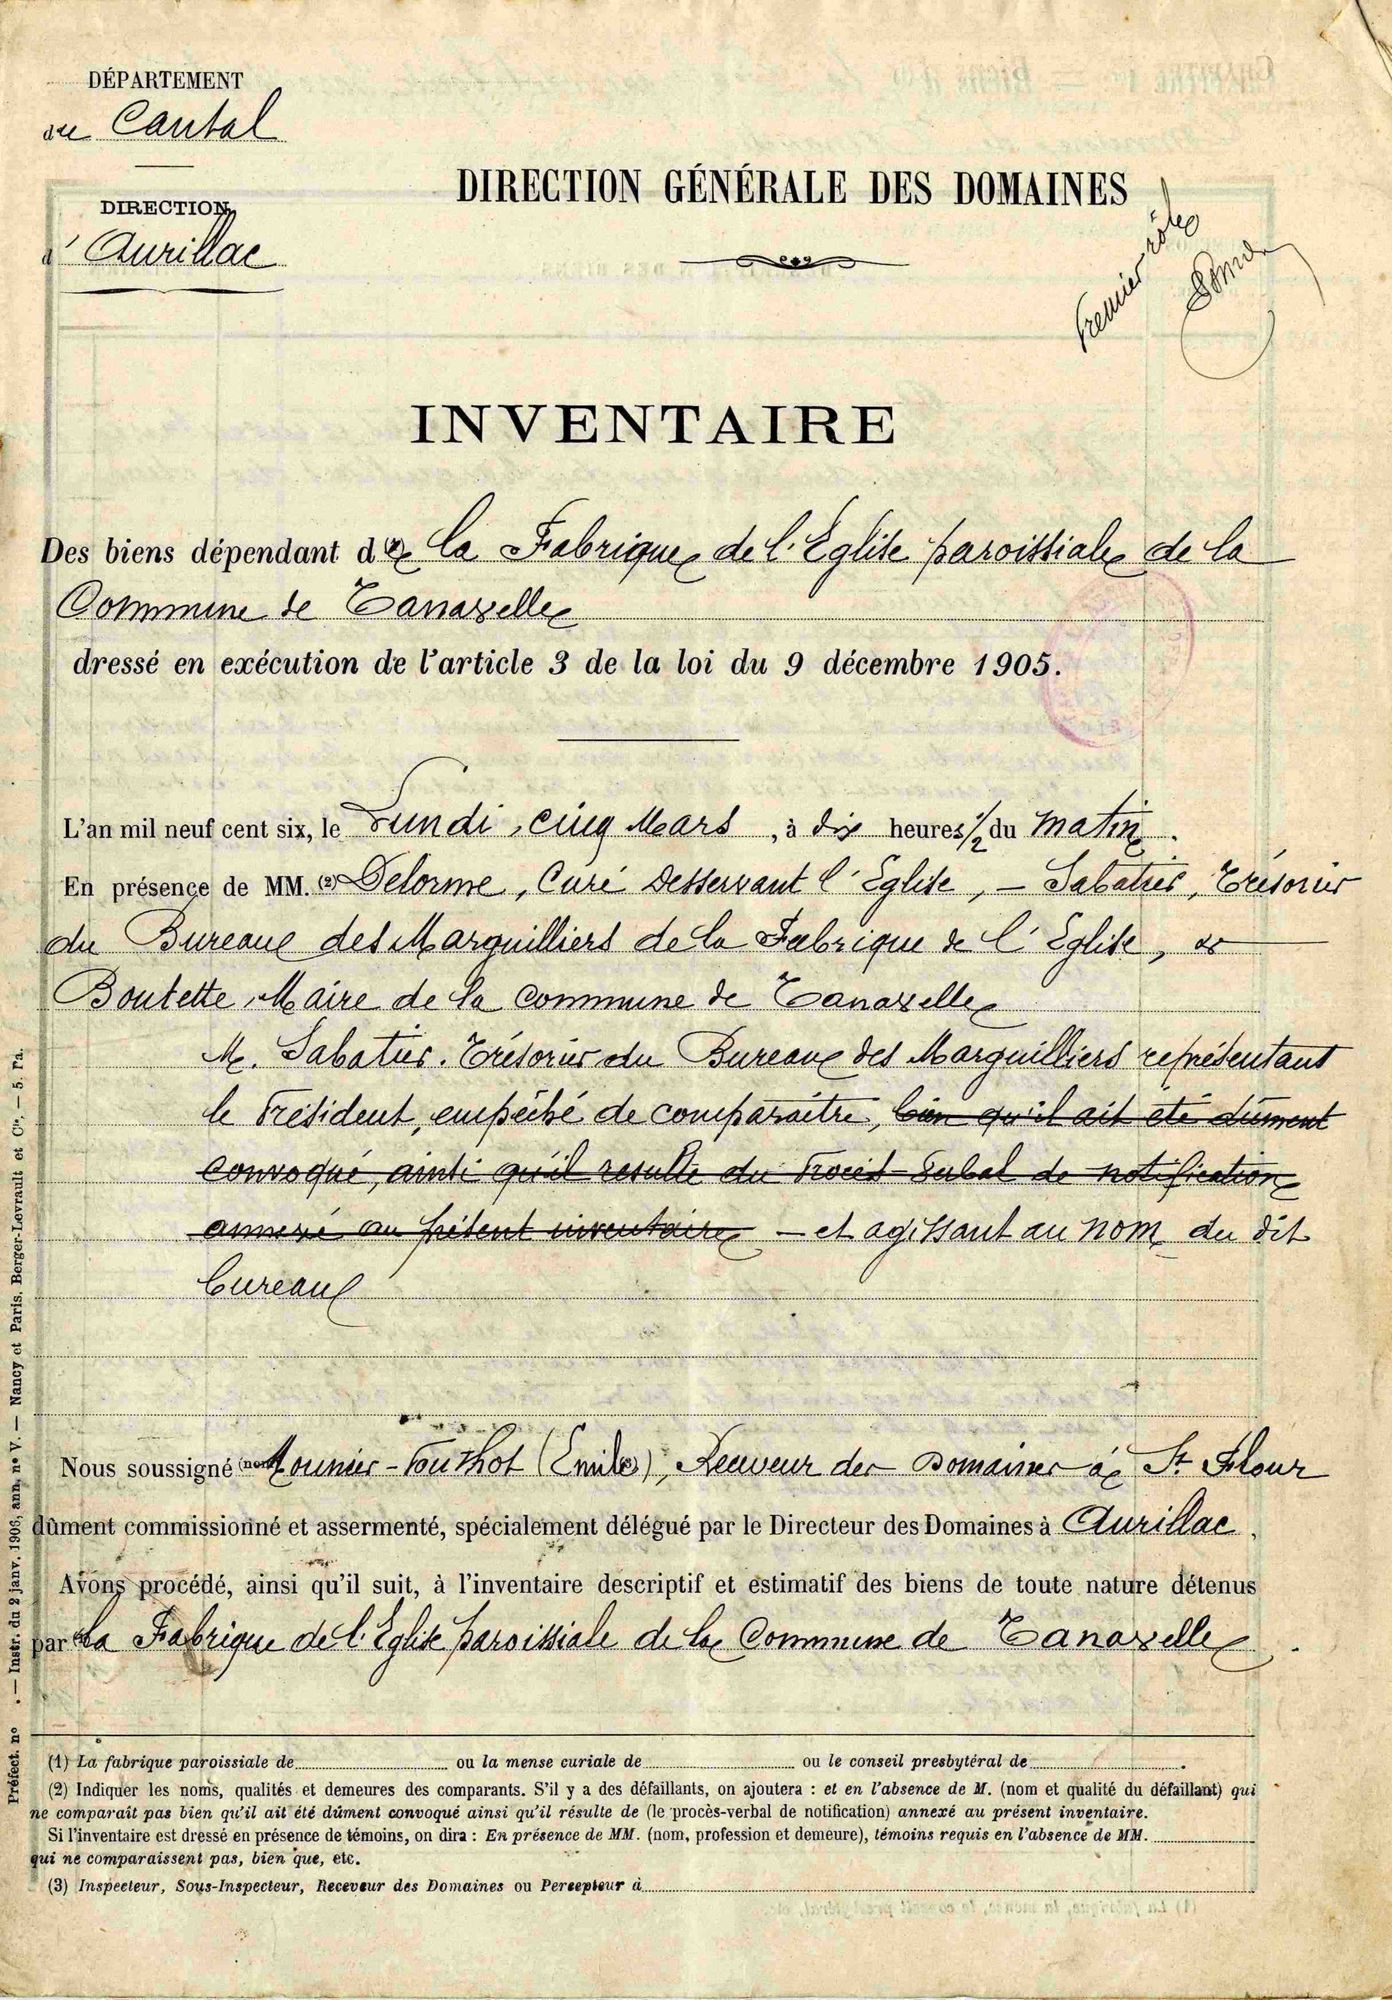 DÉPARTEMENT
du Cantal
DIRECTION
d'Aurillac
DIRECTION GÉNÉRALE DES DOMAINES
Premier rôle
INVENTAIRE
Des biens dépendant de la Fabrique de l'Église paroissiale de la
Commune de Tanavelle
dressé en exécution de l'article 3 de la loi du 9 décembre 1905.
L'an mil neuf cent six, le Lundi, cinq Mars, à dix heures 1/2 du matin.
En présence de MM. (2) Delorme, Curé Desservant l'Église, — Sabatier, Trésorier
du Bureau des Marguilliers de la Fabrique de l'Église, &
Boutette, Maire de la Commune de Tanavelle
M. Sabatier. Trésorier du Bureau des Marguilliers représentant
le Président, empêché de comparaître, bien qu'il ait été dûment
convoqué, ainsi qu'il résulte du Procès-Verbal de notification
annexé au présent inventaire — et agissant au nom du dit
bureau
Nous soussigné (nom) Mounier-Pouthot (Emile), Receveur des Domaines à St Flour
dûment commissionné et assermenté, spécialement délégué par le Directeur des Domaines à Aurillac,
Avons procédé, ainsi qu'il suit, à l'inventaire descriptif et estimatif des biens de toute nature détenus
par la Fabrique de l'Église paroissiale de la Commune de Tanavelle.
(1) La fabrique paroissiale de ou la mense curiale de ou le conseil presbytéral de .
(2) Indiquer les noms, qualités et demeures des comparants. S'il y a des défaillants, on ajoutera : et en l'absence de M. (nom et qualité du défaillant) qui
ne comparaît pas bien qu'il ait été dûment convoqué ainsi qu'il résulte de (le procès-verbal de notification) annexé au présent inventaire.
Si l'inventaire est dressé en présence de témoins, on dira : En présence de MM. (nom, profession et demeure), témoins requis en l'absence de MM.
qui ne comparaissent pas, bien que, etc.
(3) Inspecteur, Sous-Inspecteur, Receveur des Domaines ou Percepteur à
Préfect. no . — Instr. du 2 janv. 1906, ann. no V. — Nancy et Paris, Berger-Levrault et Cie. — 5. Pa.